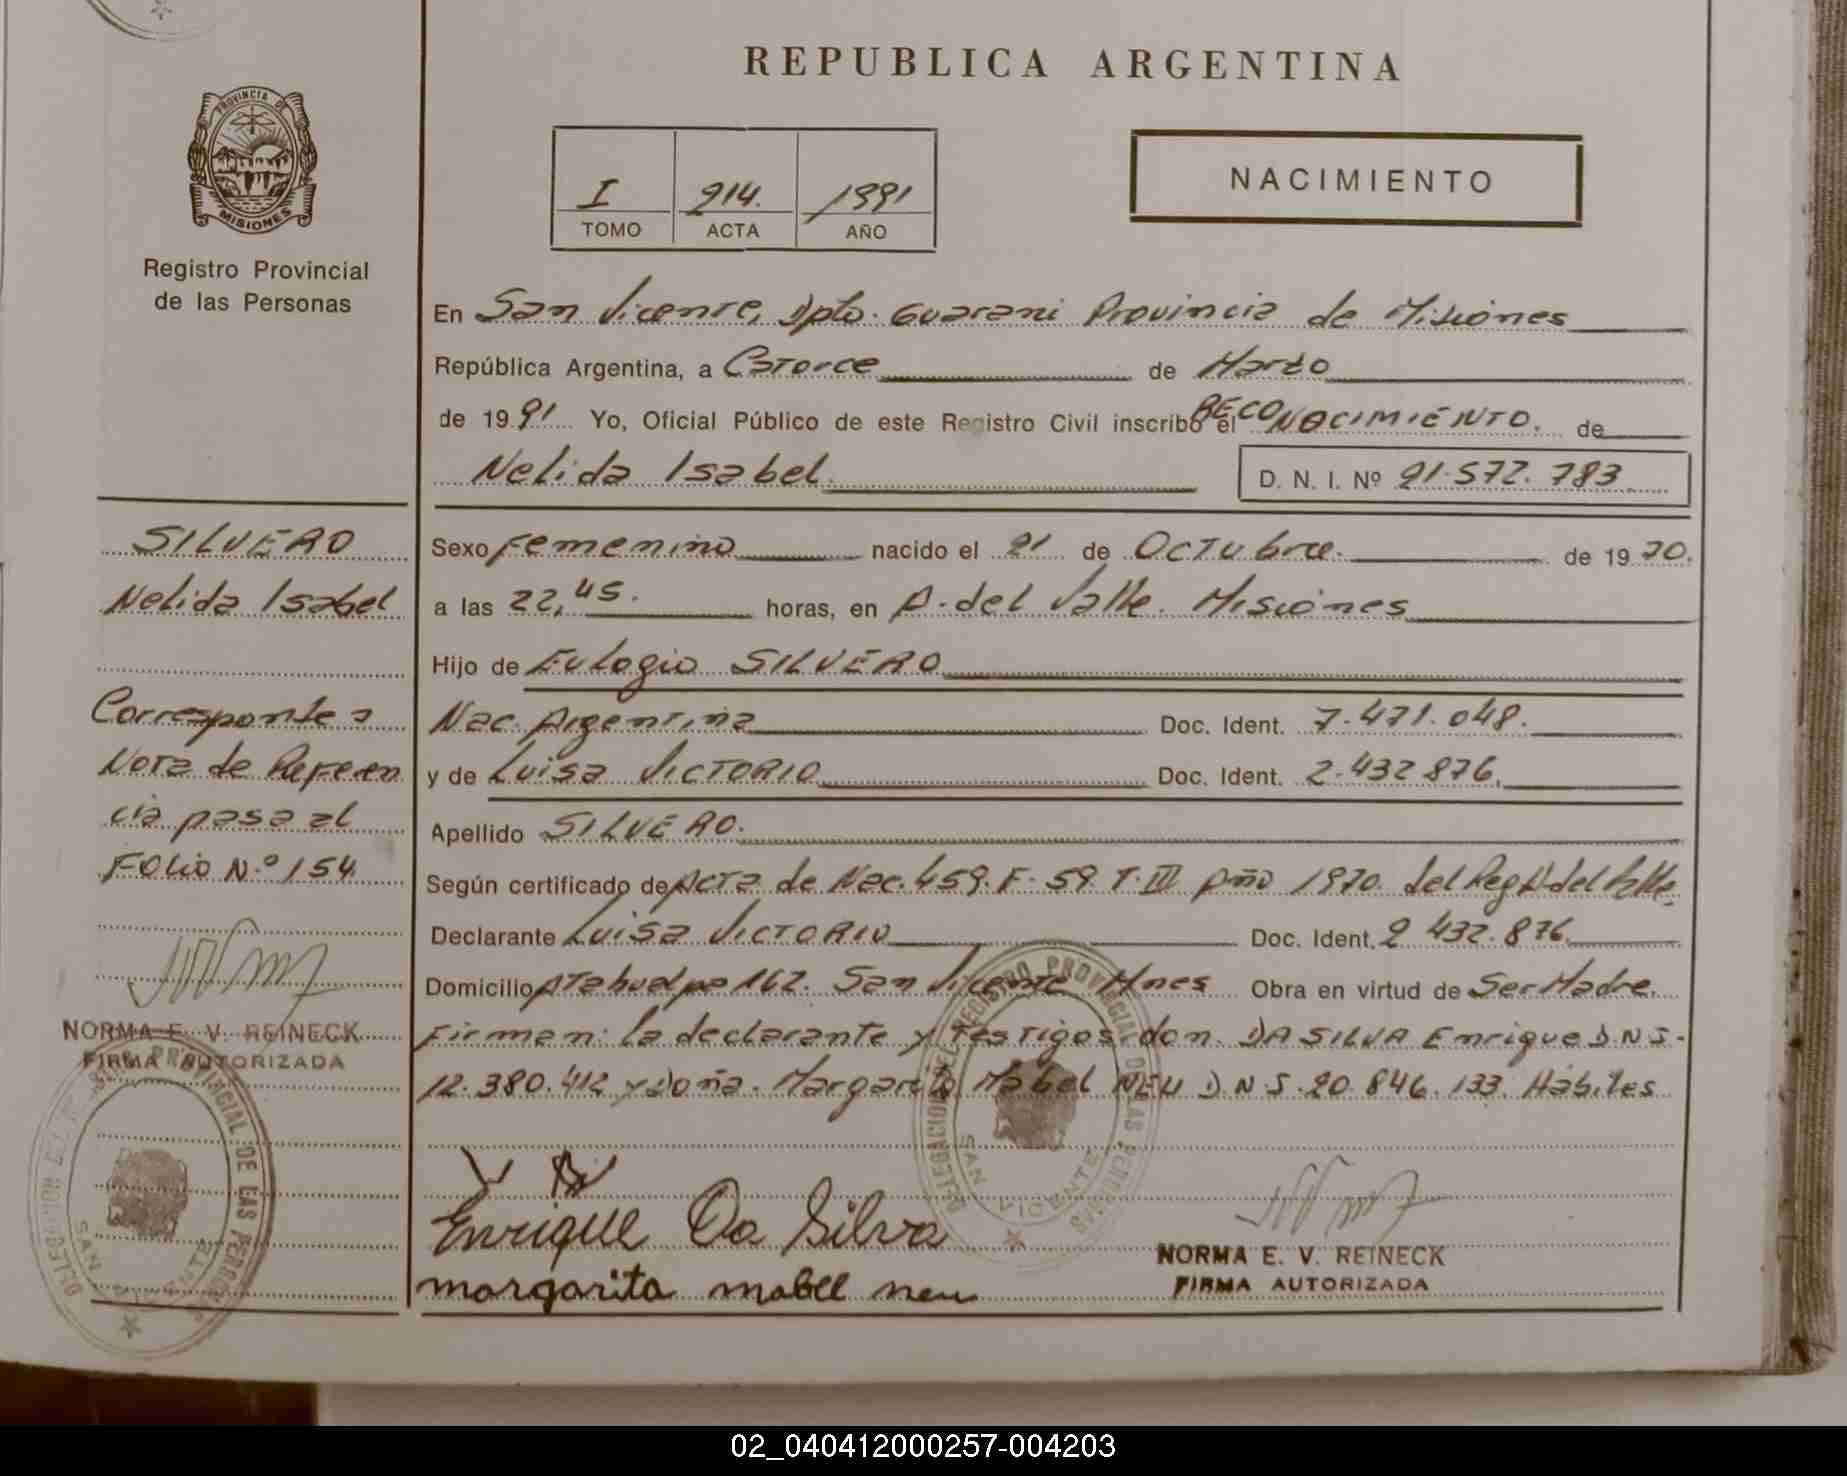 REPUBLICA ARGENTINA
PROVINCIA DE
MISIONES
Registro Provincial
de las Personas
I 214. 1991
TOMO ACTA AÑO
NACIMIENTO
En San Vicente, Dpto. Guarani Provincia de Misiones
República Argentina, a Catorce de Marzo
de 1991 Yo, Oficial Público de este Registro Civil inscribo el RECONOCIMIENTO. de
Nelida Isabel. D. N. I. Nº 21.572.783
SILVERO
Nelida Isabel
Corresponde a
Nota de Referen
cia pasa al
Folio N.º 154
NORMA E. V. REINECK
FIRMA AUTORIZADA
Sexo Femenino nacido el 21 de Octubre. de 1970.
a las 22,45. horas, en A. del Valle. Misiones
Hijo de Eulogio SILVERO
Nac. Argentina Doc. Ident. 7.471.048.
y de Luisa VICTORIO Doc. Ident. 2.432876.
Apellido SILVERO.
Según certificado de Acta de Nac. 459. F. 59. T. III Año 1970. del Reg A. del Valle.
Declarante Luisa VICTORIO Doc. Ident. 2 432.876.
Domicilio Atahualpa 162. San Vicente Mnes Obra en virtud de Ser Madre.
Firman: la declarante y Testigos don DA SILVA Enrique D.N.I.
12.380.412 y Doña. Margarita Mabel NEU D.N.I. 20.846.133. Hábiles
Enrique Da Silva
margarita mabel neu
NORMA E. V. REINECK
FIRMA AUTORIZADA
DELEGACION DEL REGISTRO PROVINCIAL DE LAS PERSONAS
SAN VICENTE
02_040412000257-004203